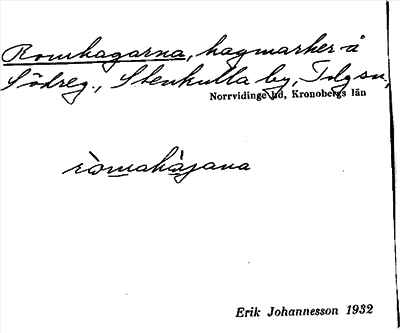 Romhagarna, hagmarker å
Södreg., Stenkulla by, Tolgsn,
Norrvidinge hd, Kronobergs län
ròmahàgana
Erik Johannesson 1932